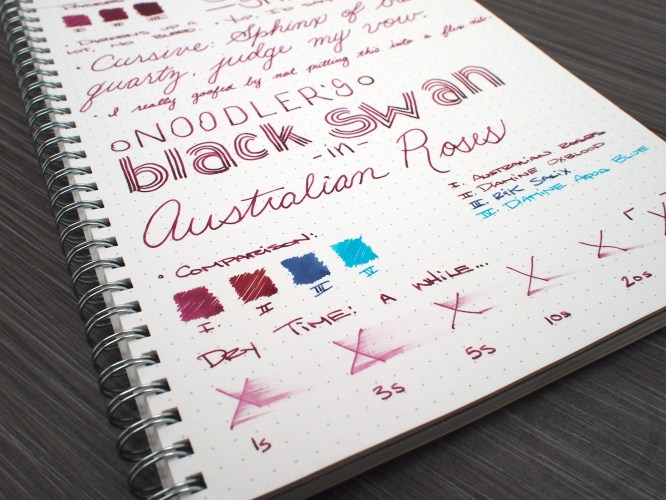 I II III
• Darkens up a
lot, no bleed
• Cursive: Sphinx of
quartz, judge my vow.
• I really goofed by not putting this into a flex nib.
NOODLER'S
black swan
-in-
Australian Roses
I. Australian Roses
II. Diamine Oxblood
III. R&K Salix
IV. Diamine Aqua Blue
• Comparison:
I II III IV
Dry Time: A while...
1s 3s 5s 10s 20s